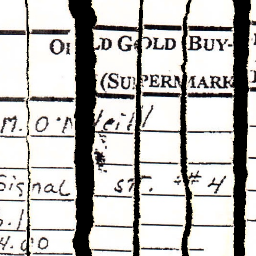 OLD GOLD BUY-
(SUPERMARK
M. O'Neill
Signal ST. #4
4.00